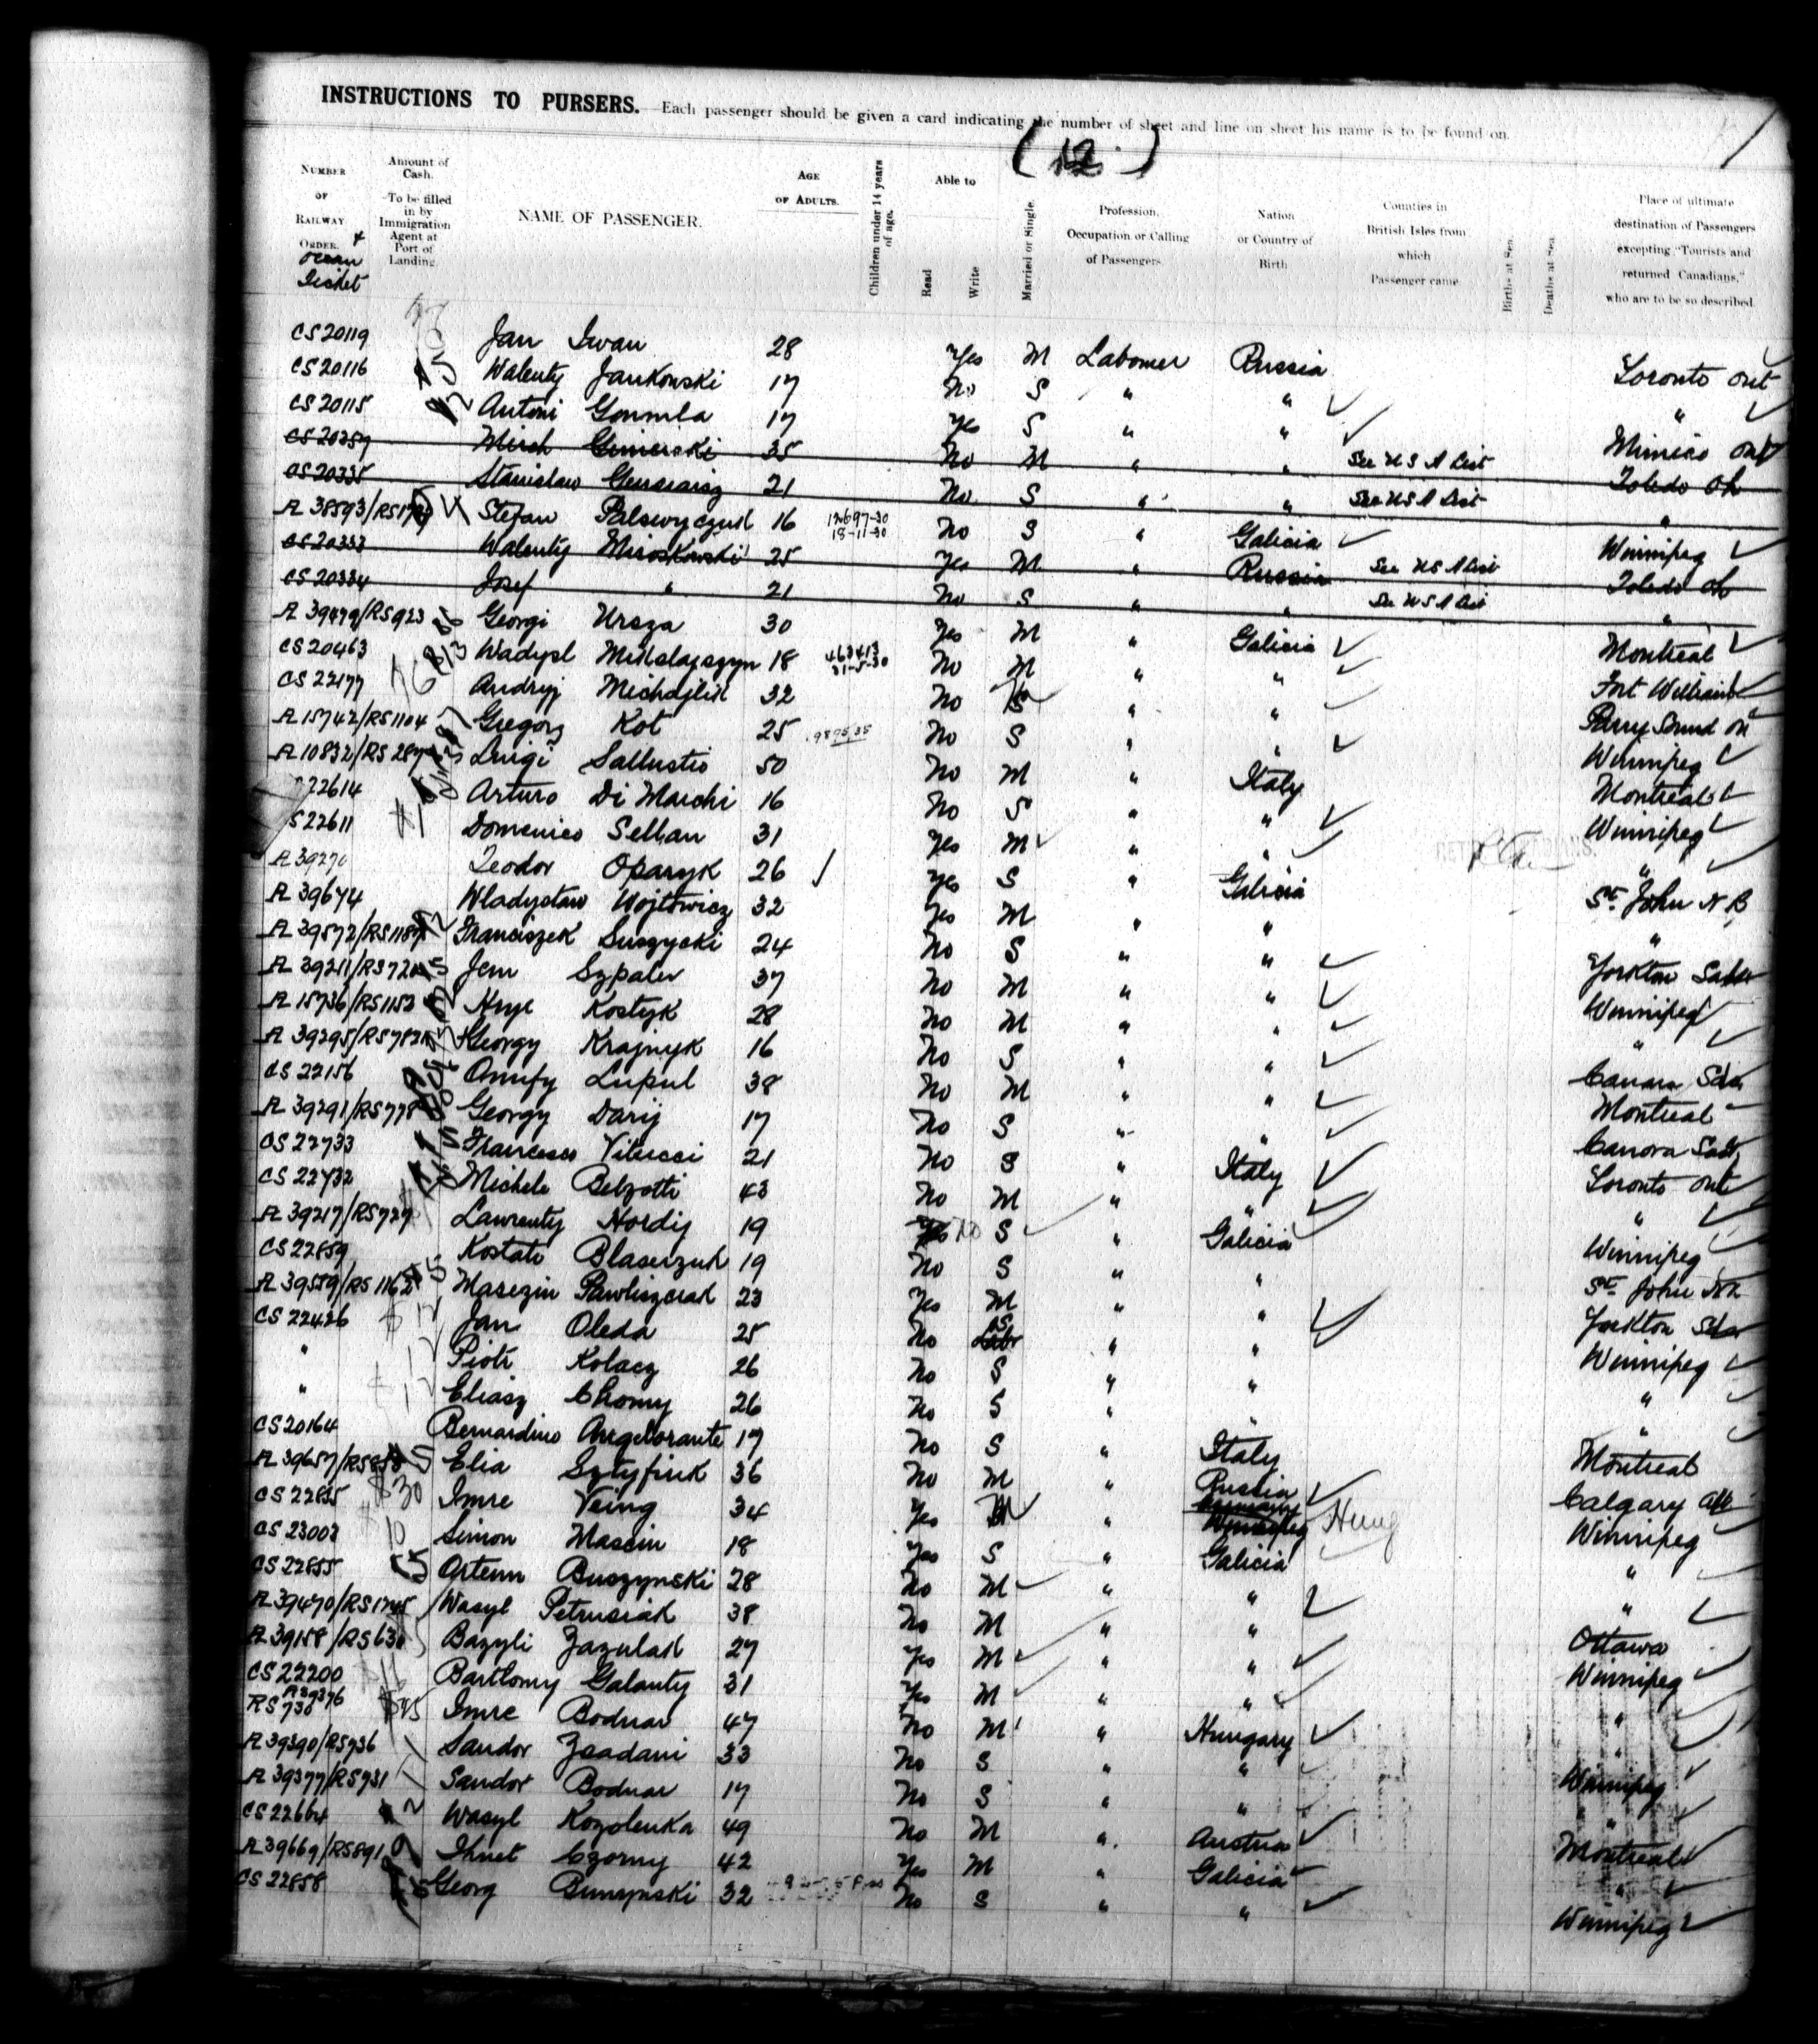 INSTRUCTIONS TO PURSERS. Each passenger should be given a card indicating the number of sheet and line on sheet his name is to be found on.
(12.)
NUMBER OF RAILWAY ORDER. & Ocean Ticket
Amount of Cash. To be filled in by Immigration Agent at Port of Landing
NAME OF PASSENGER.
AGE OF ADULTS.
Children under 14 years of age.
Able to
Read
Write
Married or Single.
Profession, Occupation or Calling of Passengers
Nation or Country of Birth
Counties in British Isles from which Passenger came
Births at Sea.
Deaths at Sea.
Place of ultimate destination of Passengers excepting "Tourists and returned Canadians," who are to be so described
CS 20119 Jan Iwan 28 Yes M Labourer Russia Toronto Ont
CS 20116 Walenty Jankowski 17 No S " " "
CS 20115 Antoni 17 Yes S " " Mimico Ont
CS 20357 35 No M " " See U S A List Toledo Oh
CS 20335 Stanislaw 21 No S " " See U S A List "
A 38593/RS Stefan 16 12697-30 18-11-30 No S " Galicia Winnipeg
CS 20333 Walenty Miroskowski 25 Yes M " Russia See U S A List Toledo Oh
CS 20334 Josef " 21 No S " " See U S A List "
A 39479/RS923 Georgi Ursza 30 Yes M " Galicia Montreal
CS 20463 Wadysl 18 463413 31-5-30 No M " " Fort William
CS 22177 Andryj Michajlik 32 No " " Parry Sound On
A 15742/RS1104 Gregorz Kot 25 No S " " Winnipeg
A 10832/RS Luigi Sallustio 50 No M " Italy Montreal
22614 Arturo Di Marchi 16 No S " " Winnipeg
S 22611 Domenico Sellan 31 Yes M " " "
A 3927 Teodor Oparyk 26 Yes S " Galicia St. John N B
A 39674 Wladyslaw Wojtowicz 32 Yes M " " "
A 39572/RS1187 Franciszek Suszycki 24 No S " " Yorkton Sask
A 39211/RS720 Szpaler 37 No M " " Winnipeg
A 15736/RS1153 Kostyk 28 No M " " "
A 39295/RS782 Georgy Krajnyk 16 No S " " Canora Sask
CS 22156 Onufy Lupul 38 No M " " Montreal
A 39291/RS778 Georgy Darij 17 No S " " Canora Sask
CS 22733 Francesco Vitucci 21 No S " Italy Toronto Ont
CS 22732 Michele Belzotti 43 No M " " "
A 39217/RS727 Lawrenty Hordij 19 No S " Galicia Winnipeg
CS 22859 Kostati 19 No S " " St. John NB
A 39559/RS1162 23 Yes M " " Yorkton Sask
CS 22426 Jan Oleda 25 No S " " Winnipeg
" Piotr Kolacz 26 No S " " "
" Eliasz Chomy 26 No S " " "
CS 20164 Bernardino Angelorante 17 No S " Italy Montreal
A 39657/RS Elia Sztyfiuk 36 No M " Russia Calgary Alb
CS 22835 $30 Imre Veing 34 Yes M " Hung Winnipeg
CS 23003 10 Simon Mascin 18 Yes S " Galicia "
CS 22855 Artem Buszynski 28 No M " " "
A 39470/RS1245 Wasyl Petrusiak 38 No M " " Ottawa
A 39158/RS630 Bazyli Zazulak 27 Yes M " " Winnipeg
CS 22200 Bartlomy Galanty 31 Yes M " " "
A 39376 RS 730 Imre Bodnar 47 No M " Hungary "
A 39390/RS736 Sandor Zsadani 33 No S " " Winnipeg
A 39377/RS731 Sandor Bodnar 17 No S " " "
CS 22664 Wasyl Kozolenka 49 No M " Austria Montreal
A 39669/RS891 Ihnet Czorny 42 Yes M " Galicia "
CS 22858 Georg 32 No S " " Winnipeg